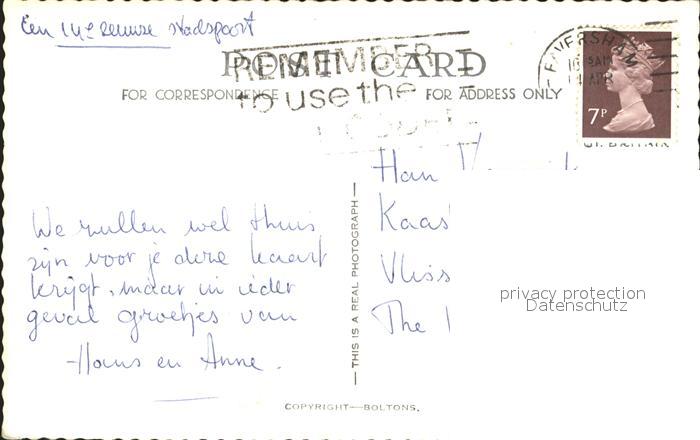 Een 14e eeuwse stadspoort
POST CARD
REMEMBER
to use the
FOR CORRESPONDENCE
FOR ADDRESS ONLY
FAVERSHAM
AM
APR
7P
We zullen wel thuis
zijn voor je deze kaart
krijgt, maar in ieder
geval groetjes van
Hans en Anne.
THIS IS A REAL PHOTOGRAPH
Han
Kaas
Vliss
The
privacy protection
Datenschutz
COPYRIGHT—BOLTONS.